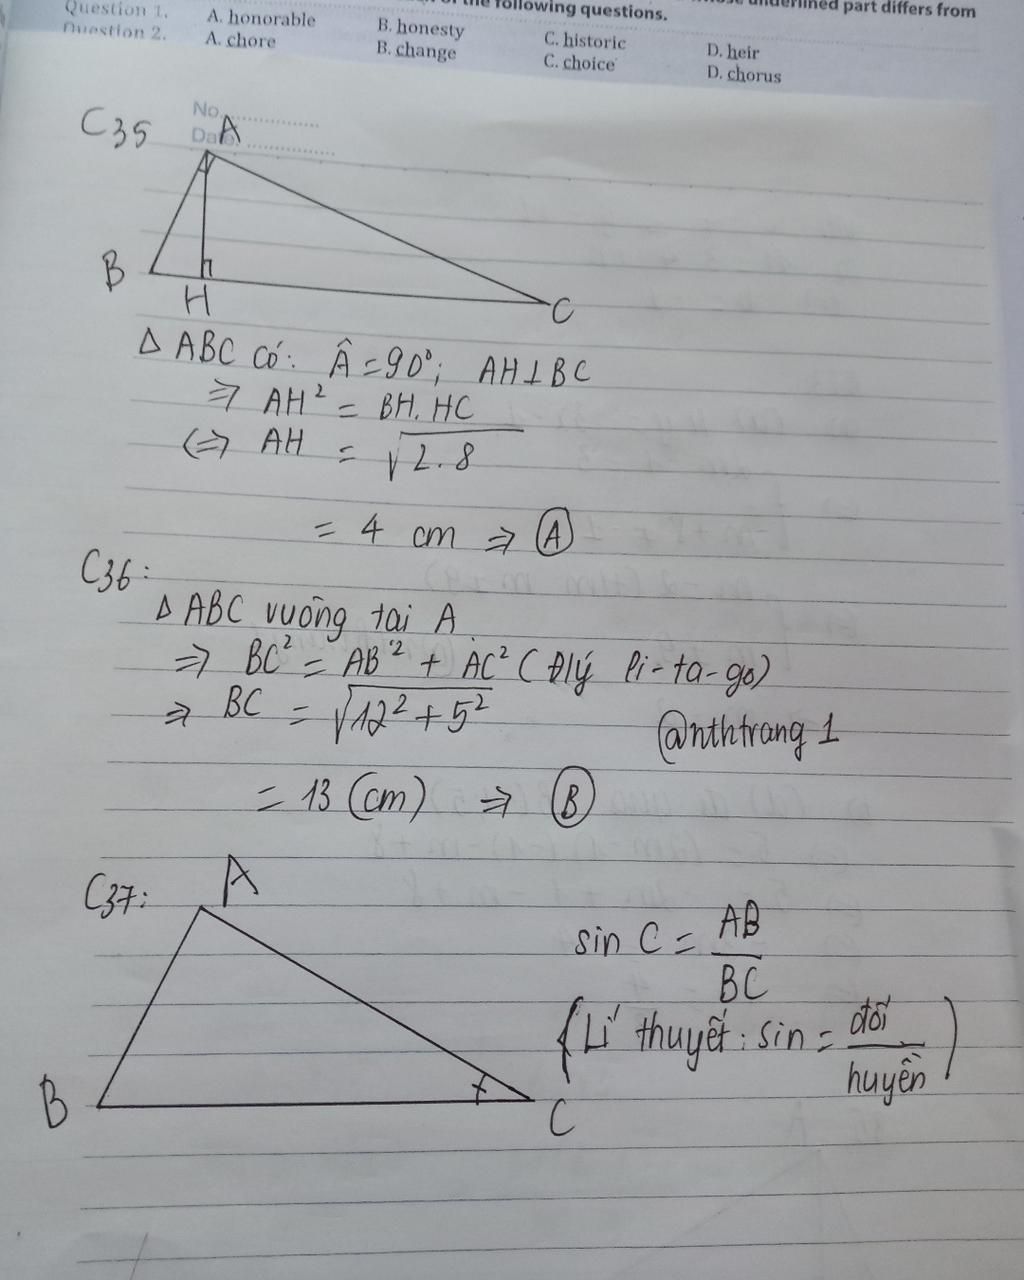 of the following questions.
underlined part differs from
Question 1. A. honorable B. honesty C. historic D. heir
Question 2. A. chore B. change C. choice D. chorus
No.
Date
C35
A
B
H
C
Δ ABC có: Â = 90°; AH ⊥ BC
⇒ AH² = BH. HC
⇔ AH = √2.8
= 4 cm ⇒ A
C36:
Δ ABC vuông tại A
⇒ BC² = AB² + AC² (Đlý Pi-ta-go)
⇒ BC = √12² + 5²
@nthtrang 1
= 13 (cm) ⇒ B
C37:
A
B
C
sin C = AB/BC
(Lí thuyết: sin = đối/huyền)